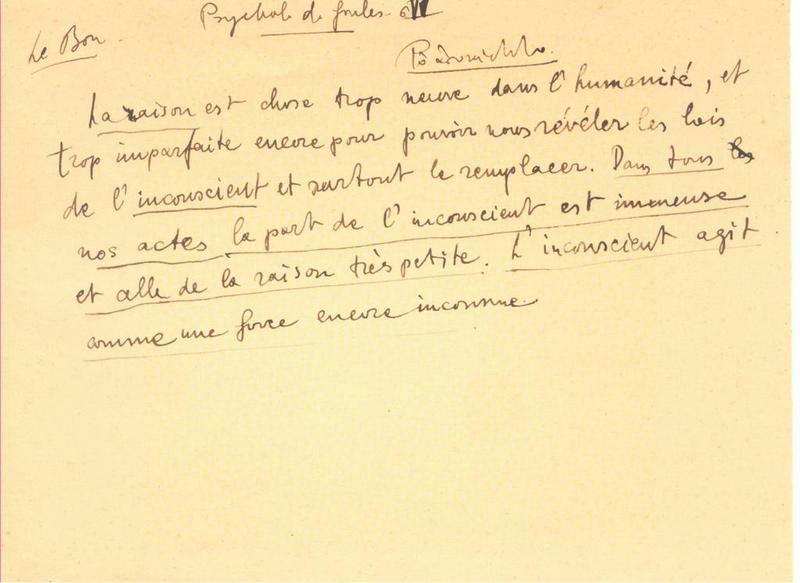 Psychol. de foules. VI
Le Bon.
La raison est chose trop neuve dans l'humanité, et
trop imparfaite encore pour pouvoir nous révéler les lois
de l'inconscient et surtout le remplacer. Dans tous les
nos actes la part de l'inconscient est immense
et celle de la raison très petite. L'inconscient agit
comme une force encore inconnue.